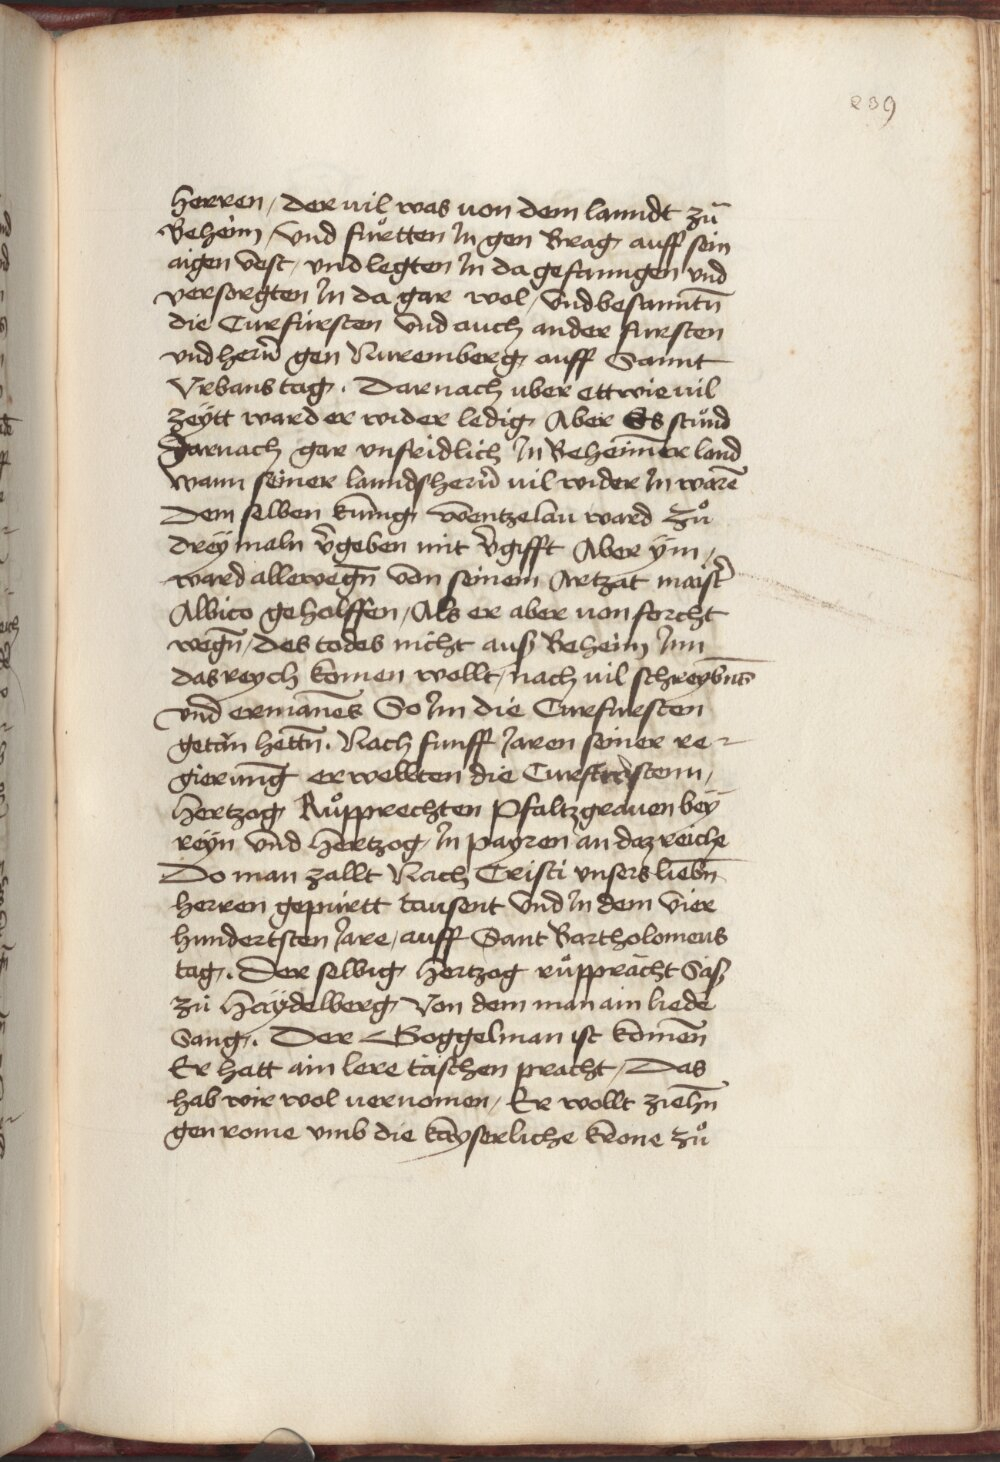 239
herren / der uil was uon dem lanndt zů
Beheim / vnd fůrtten In gen Brag auff sein
aigen vest / vnd legten In da gefanngen vnd
versorgten In da gar wol / vnd besanntn̄
die Curfürsten vnd auch ander fursten
vnd herr̄n gen Nuremberg auff Sannt
Vrbans tag . Darnach uber ettwieuil
zeÿtt ward er wider ledig Aber Es stůnd
Darnach gar vnfridlich In Beheim̄er land
wann seiner lanndsherr̄n uil wider In warē
Dem selben kun̄ig wentzelau ward zů
dreÿ maln v̄geben mit v̄gifft Aber ÿm /
ward allewegn̄ von seinem Artzat maist̄
Albico geholffen / Als er aber uon forcht
wegn̄ / des todes nicht auß Beheim Inn
das reych komen wollt / nach uil schreybn̄s
vnd ermanēs So Im die Curfursten
getan hettn̄ . Nach funff Jaren seiner re
gierung erwellten die Curfurstenn /
hertzog Růpprechten Pfaltzgrauen beÿ
reÿn vnd hertzog In payren an daz reiche
Do man zallt Nach Cristi vnsers liebn̄
herren gepürtt tausent vnd In dem vier
hundertsten Jare / auff Sant Bartholomeus
tag . Der selbig hertzog růpprächt Saß
zů Haÿdelberg Von dem man ain liede
Sang . Der Goggelman ist komen
Er hatt ain lere täschen pracht / Das
hab wir wol uernomen / Er wollt ziehn̄
gen rome vmb die kayserliche krone zů